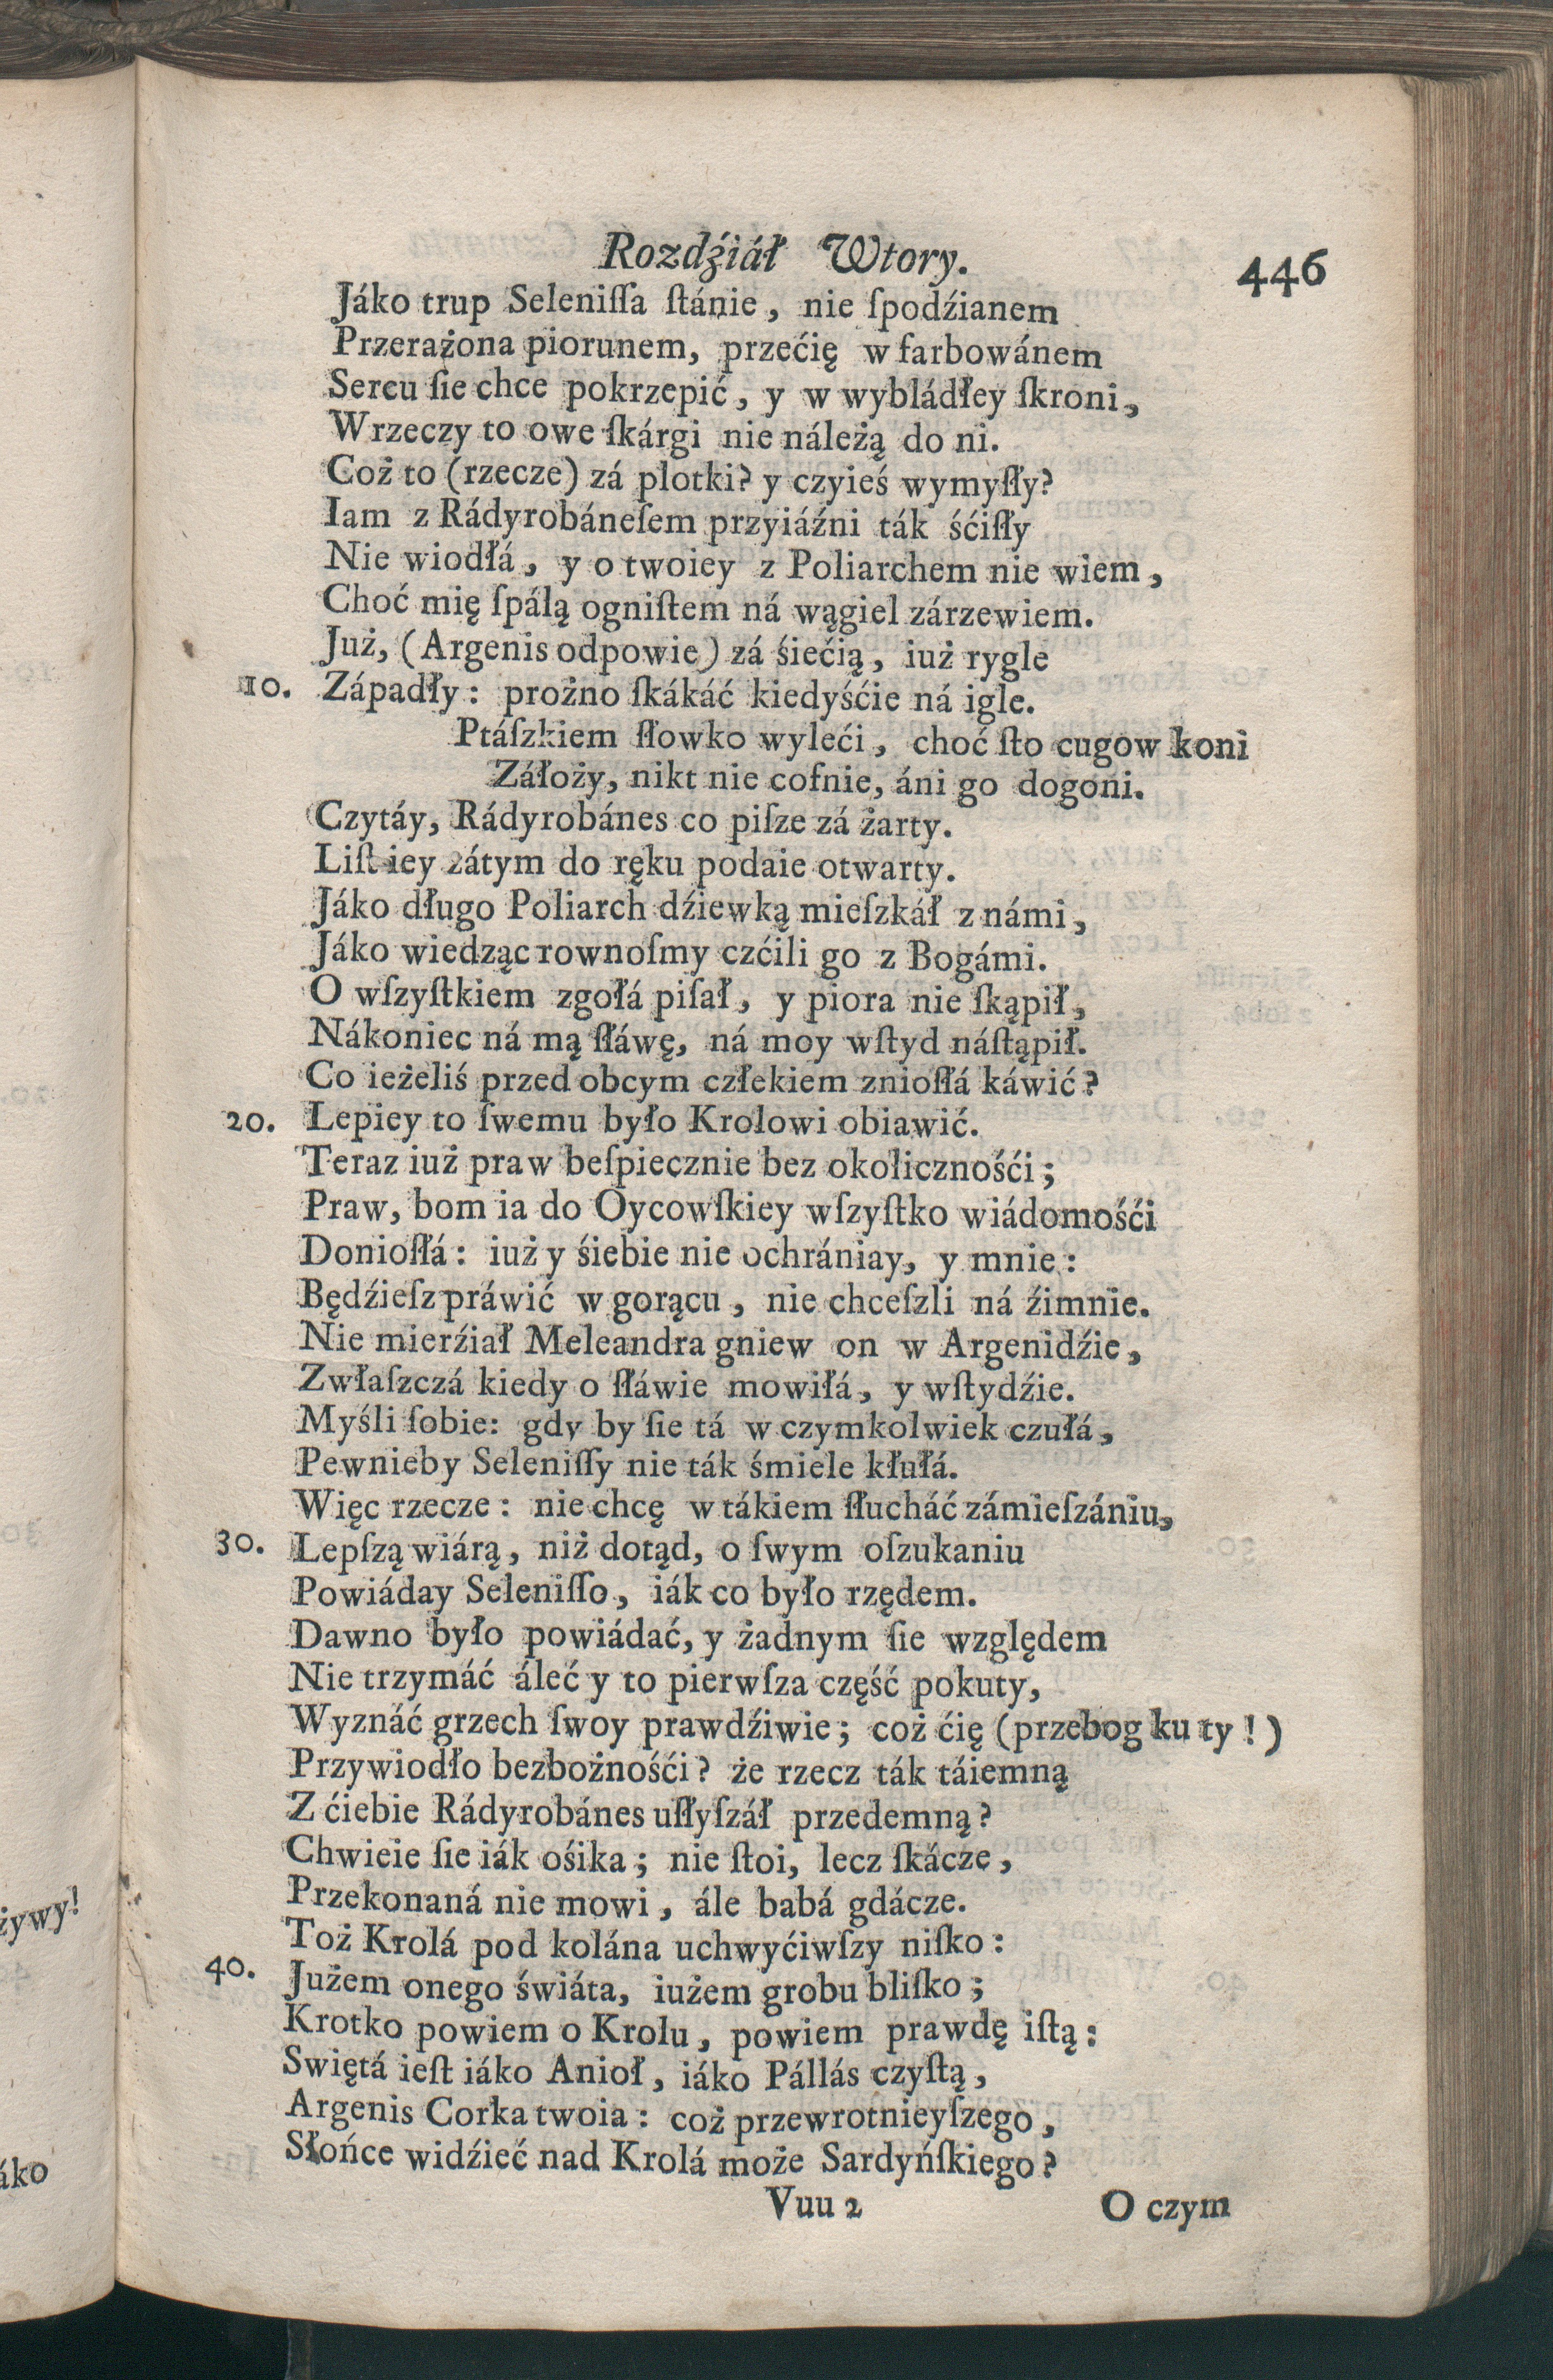 Rozdźiáł Wtory.
446
Jáko trup Seleniſſa ſtánie, nie ſpodźianem
Przerażona piorunem, przećię w farbowánem
Sercu ſie chce pokrzepić, y w wybládłey ſkroni,
Wrzeczy to owe ſkárgi nie náleżą do ni.
Coż to (rzecze) zá plotki? y czyieś wymyſły?
Iam z Rádyrobáneſem przyiáźni ták śćiſły
Nie wiodłá, y o twoiey z Poliarchem nie wiem,
Choć mię ſpálą ogniſtem ná wągiel zárzewiem.
Już, (Argenis odpowie) zá śiećią, iuż rygle
10. Západły: prożno ſkákáć kiedyśćie ná igle.
Ptáſzkiem ſłowko wyleći, choć ſto cugow koni
Záłoży, nikt nie cofnie, áni go dogoni.
Czytáy, Rádyrobánes co piſze zá żarty.
Liſt iey zátym do ręku podaie otwarty.
Jáko długo Poliarch dźiewką mieſzkáł z námi,
Jáko wiedząc rownoſmy czćili go z Bogámi.
O wſzyſtkiem zgołá piſał, y piora nie ſkąpił,
Nákoniec ná mą ſłáwę, ná moy wſtyd náſtąpił.
Co ieżeliś przed obcym człekiem znioſłá káwić?
20. Lepiey to ſwemu było Krolowi obiawić.
Teraz iuż praw beſpiecznie bez okolicznośći;
Praw, bom ia do Oycowſkiey wſzyſtko wiádomośći
Donioſłá: iuż y śiebie nie ochrániay, y mnie:
Będźieſz práwić w gorącu, nie chceſzli ná źimnie.
Nie mierźiał Meleandra gniew on w Argenidźie,
Zwłaſzczá kiedy o ſłáwie mowiłá, y wſtydźie.
Myśli ſobie: gdy by ſie tá w czymkolwiek czułá,
Pewnieby Seleniſſy nie ták śmiele kłułá.
Więc rzecze: nie chcę w tákiem ſłucháć zámieſzániu,
30. Lepſzą wiárą, niż dotąd, o ſwym oſzukaniu
Powiáday Seleniſſo, iák co było rzędem.
Dawno było powiádać, y żadnym ſie względem
Nie trzymáć áleć y to pierwſza część pokuty,
Wyznáć grzech ſwoy prawdźiwie; coż ćię (przebog ku ty!)
Przywiodło bezbożnośći? że rzecz ták táiemną
Z ćiebie Rádyrobánes uſłyſzáł przedemną?
Chwieie ſie iák ośika; nie ſtoi, lecz ſkácze,
Przekonaná nie mowi, ále babá gdácze.
Toż Krolá pod kolána uchwyćiwſzy niſko:
40. Jużem onego świáta, iużem grobu bliſko;
Krotko powiem o Krolu, powiem prawdę iſtą:
Swiętá ieſt iáko Anioł, iáko Pállás czyſtą,
Argenis Corka twoia: coż przewrotnieyſzego,
Słońce widźieć nad Krolá może Sardyńſkiego?
Vuu 2
O czym
żywy!
áko